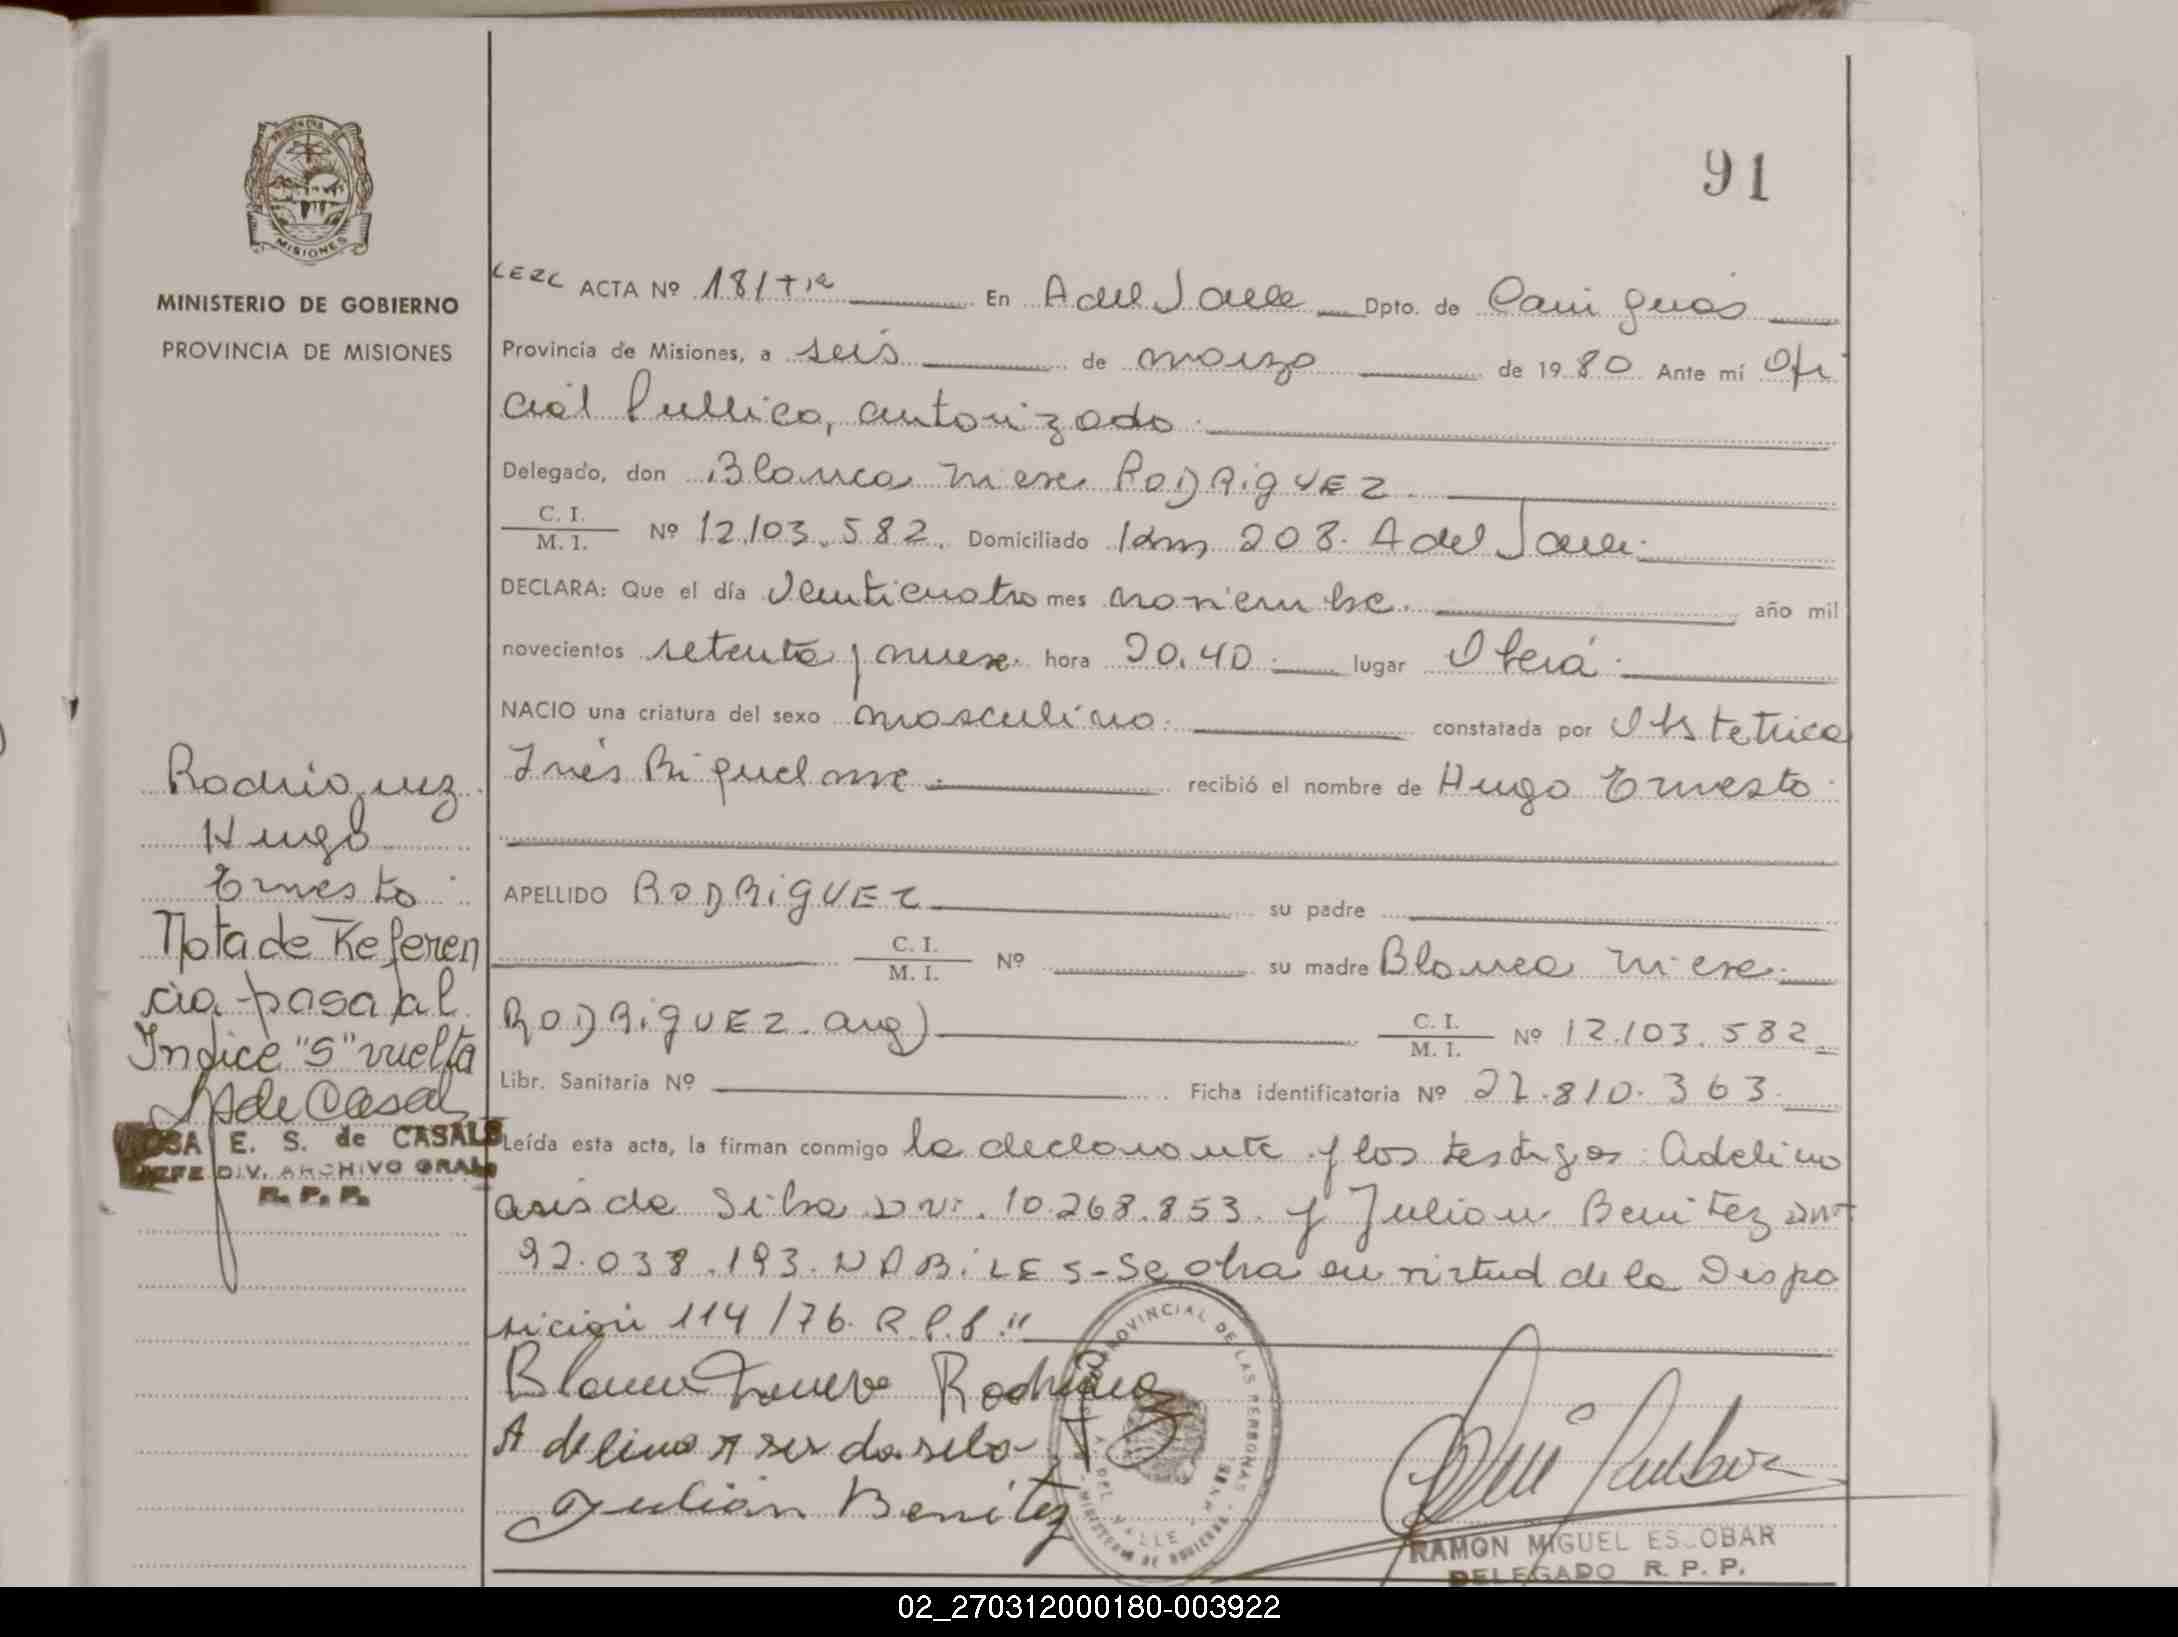 91
MISIONES
MINISTERIO DE GOBIERNO
PROVINCIA DE MISIONES
ACTA Nº 181 En A del Valle Dpto. de Cainguás
Provincia de Misiones, a seis de marzo de 1980 Ante mí Ofi
cial Publico, autorizado.
Delegado, don Blanca RODRiGUEZ.
C. I.
M. I. Nº 12.103.582. Domiciliado Km 208. A del Valle.
DECLARA: Que el día Veinticuatro mes noviembre. año mil
novecientos setenta y nueve. hora 20.40. lugar Oberá.
NACIO una criatura del sexo masculino. constatada por Obstetrica
Inés Riquelme. recibió el nombre de Hugo Ernesto.
APELLIDO RODRiGUEZ su padre
C. I.
M. I. Nº su madre Blanca
RODRiGUEZ. arg) C. I.
M. I. Nº 12.103.582
Libr. Sanitaria Nº Ficha identificatoria Nº 27.810.363.
Leída esta acta, la firman conmigo la declarante y los testigos: Adelino
da Silva DNI. 10.268.853. y Julian Benitez DNI
92.038.193. HABiLES-Se obra en virtud de la Dispo
sición 114/76. R.P.P."
Rodriguez
Hugo
Ernesto.
Nota de Referen
cia pasa al
Indice "S" vuelta
de Casal
E. S. de CASALS
JEFE DIV. ARCHIVO GRAL.
R. P. P.
Blanca Rodriguez
Adelino da silva
Julián Benítez
PROVINCIAL DE LAS PERSONAS
MINISTERIO DE GOBIERNO
RAMON MIGUEL ESCOBAR
DELEGADO R. P. P.
02_270312000180-003922